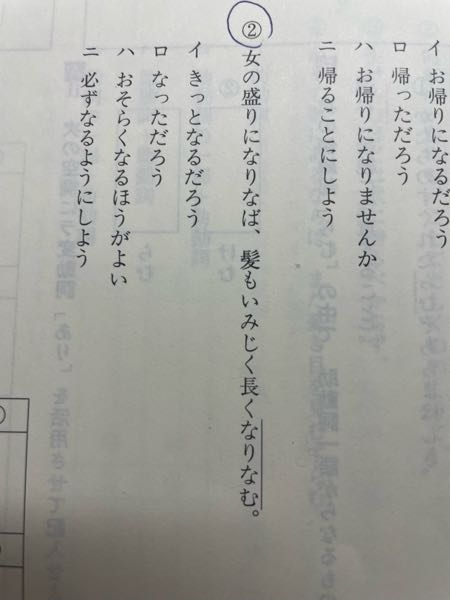 イ お帰りになるだろう
ロ 帰っただろう
ハ お帰りになりませんか
ニ 帰ることにしよう
② 女の盛りになりなば、髪もいみじく長くなりなむ。
イ きっとなるだろう
ロ なっただろう
ハ おそらくなるほうがよい
ニ 必ずなるようにしよう